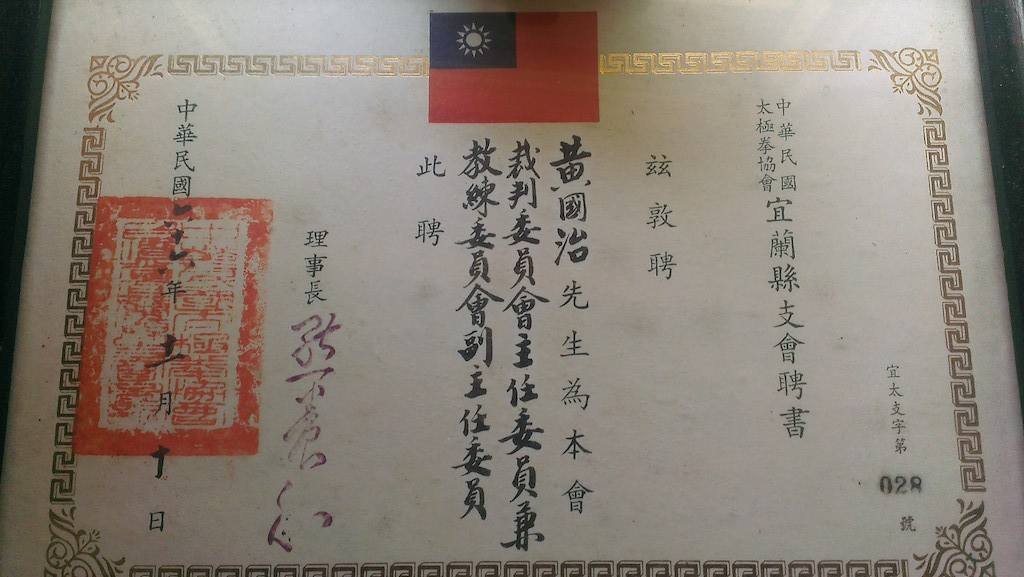 宜太支字第028號
中華民國
太極拳協會
宜蘭縣支會聘書
茲敦聘
黃國治先生為本會
裁判委員會主任委員兼
教練委員會副主任委員
此聘
理事長
中華民國六十六年十一月十日